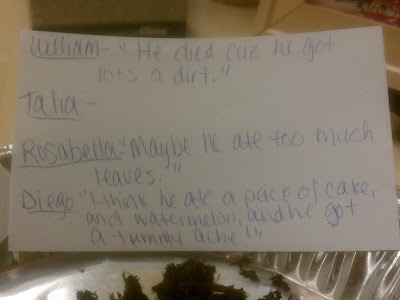 William- "He died cuz he got
lots a dirt."
Talia-
Rosabella "Maybe he ate too much
leaves."
Diego "I think he ate a peice of cake,
and watermelon, and he got
a tummy ache!"